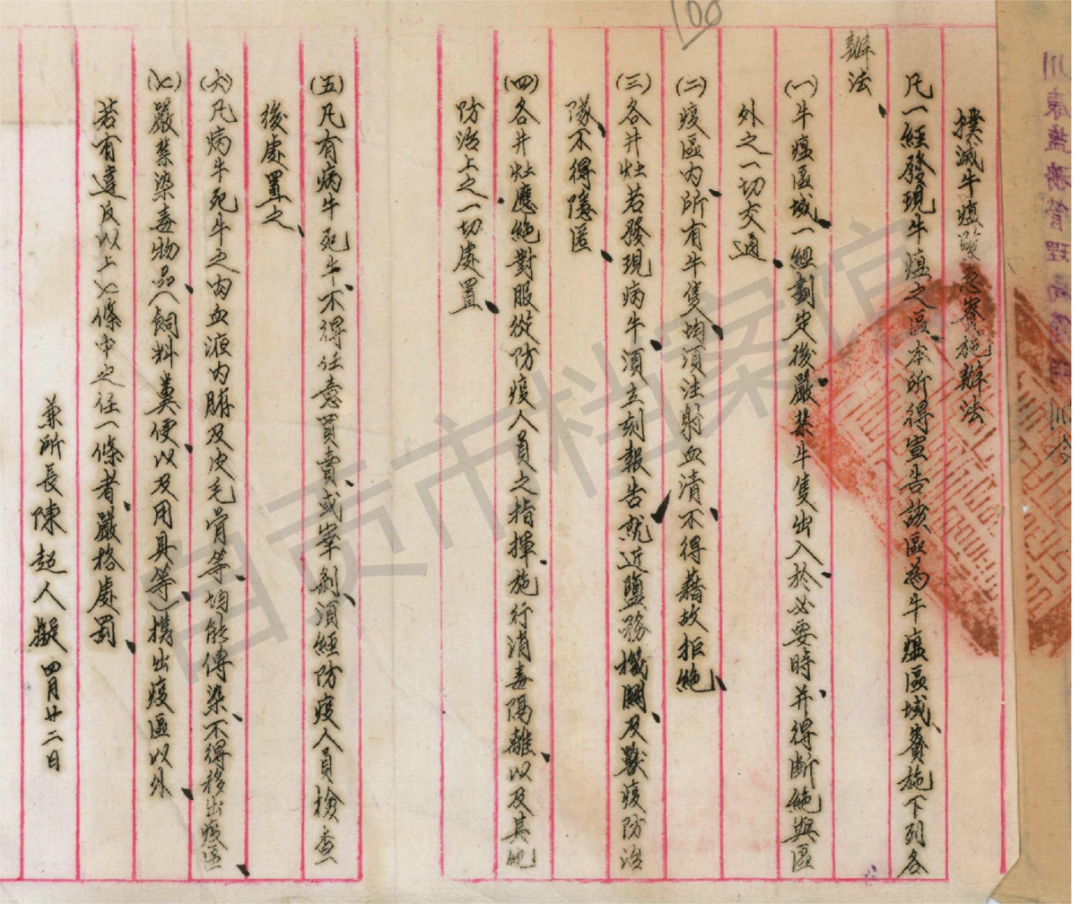 100
撲滅牛瘟緊急實施辦法
凡一經發現牛瘟之區本所得宣告該區為牛瘟區域、實施下列各
辦法、
(一)牛瘟區域一經劃定後嚴禁牛隻出入於必要時、並得斷絕與區
外之一切交通、
(二)疫區內、所有牛隻、均須注射血清、不得藉故拒絕、
(三)各井灶若發現病牛、須立刻報告就近鹽務機關、及獸疫防治
隊、不得隱匿、
(四)各井灶、應絕對服從防疫人員之指揮、施行消毒隔離、以及其他
防治上之一切處置、
(五)凡有病牛死牛、不得任意買賣、或宰剝、須經防疫人員檢查
後處置之、
(六)凡病牛死牛之肉血液內臟及皮毛骨等、均能傳染、不得移出疫區、
(七)嚴禁染毒物品、(飼料糞便、以及用具等、)携出疫區以外、
若有違反以上七條中之任一條者、嚴格處罰、
兼所長陳超人擬 四月廿二日
川康鹽務管理局
自贡市档案馆